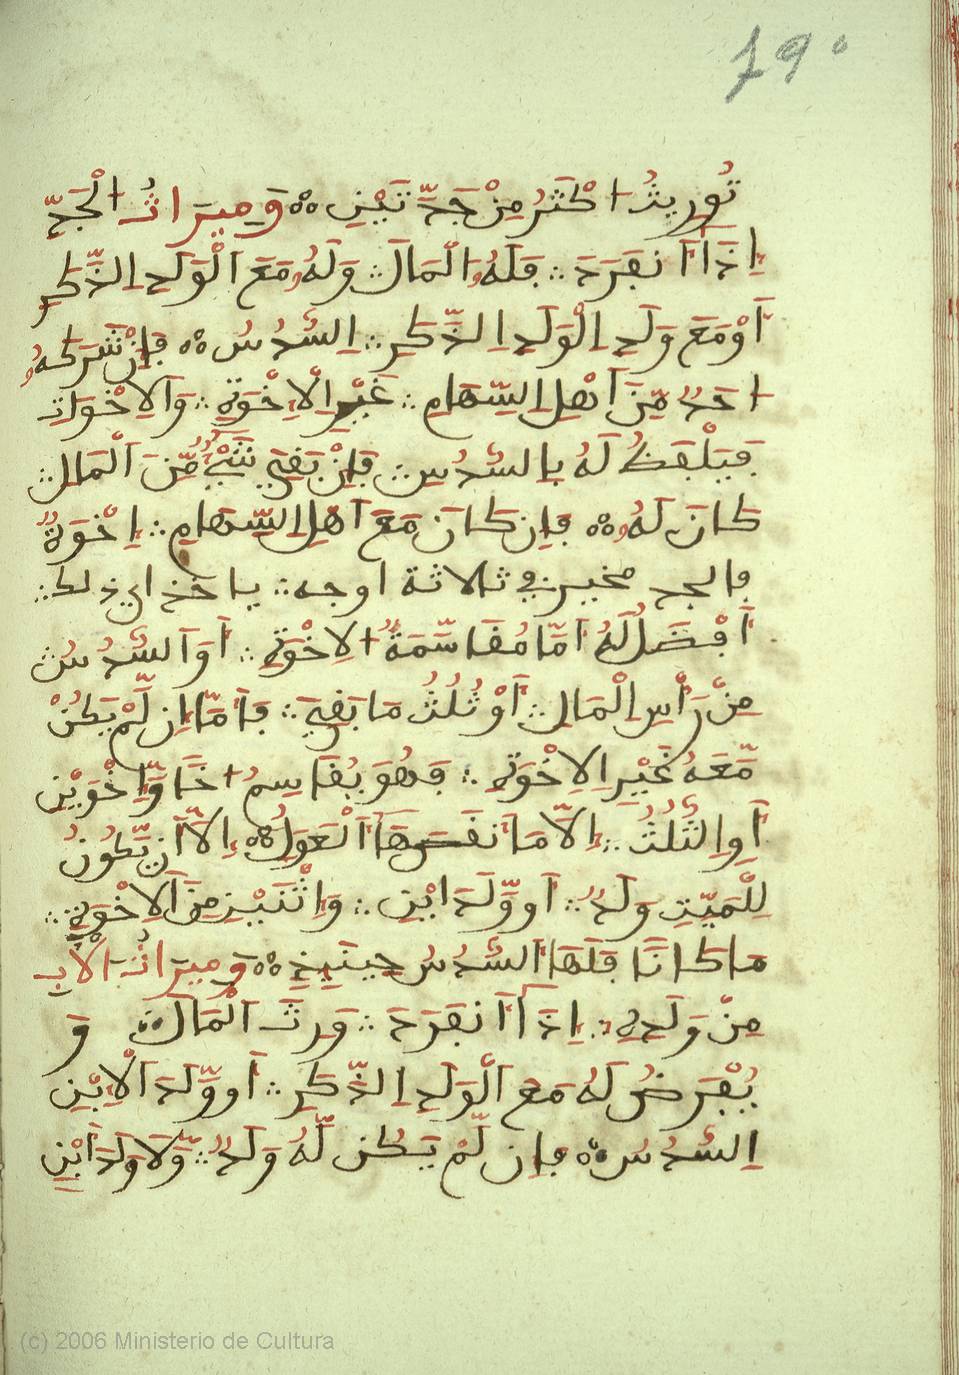 79°
تُورِيثُ اكْثَرُ مِنْ جَدَّتَيْنِ ۞ وَمِيرَاثُ الْجَدِّ
إِذَا اَنفَرَدَ ؞ فَلَهُ الْمَالُ وَلَهُ مَعَ الْوَلَدِ الذَّكَرِ
أَوْ مَعَ وَلَدِ الْوَلَدِ الذَّكَرِ ؞ السُّدُسُ ۞ فَإِنْ شَرَكَهُ
احَدٌ مِّنَ اَهْلِ السِّهَامِ ؞ غَيْرِ الْاِخْوَةِ ؞ وَالاِخْوَاتِ
فَيَلْفَظُ لَهُ بِالسُّدُسِ ؞ فَإِنْ بَقِيَ شَيْءٌ مِّنَ الْمَالِ
كَانَ لَهُ ۞ فَإِن كَانَ مَعَ اَهْلِ السِّهَامِ ؞ إِخْوَةٌ
فالجد مخير في ثلاثة اوجه ؞ ياخذ اي ذلك ؞
أَفْضَلُ لَهُ اَمَّا مُقَاسَّمَةُ الاِخْوَةِ ؞ أَوَ السُّدُسُ
مِنْ رَأْسِ الْمَالِ ؞ أَوْ ثُلُثُ مَا بَقِيَ ؞ فَاَمَّا اِن لَّمْ يَكُنْ
مَّعَهُ غَيْرِ الاِخْوَةِ ؞ فَهُوَ يُقَاسِمُ اخًا وَّاِخْوَيْنِ
أَوِ الثُّلُثُ ؞ إِلاَّ مَا نَقَصَهَا الْعَوَلُ ۞ إِلاَّ أَن يَّكُونُ
لِلْمَيِّتِ وَلَدٌ ؞ أَو وَّلَدَ ابْنِ ؞ وَاِثْنَيْنِ مِنَ الاِخْوَةِ ؞
مَا كَانَا فَلَهَا السُّدُسُ حِينَيِذٍ ۞ وَمِيرَاثُ الْاَبِ
مِنْ وَلَدِهِ ؞ إِذَا اَنفَرَدَ ؞ وَرِثَ الْمَالَ ۞ وَ
يُفْرَضُ لَهُ مَعَ الْوَلَدِ الذَّكَرِ ؞ أَو وَّلَدَ الْاِبْنِ
السُّدُسُ ۞ فَإِن لَّمْ يَكُن لَّهُ وَلَدٌ ؞ وَّلاَ وَلَدَ اَبْنِ
(c) 2006 Ministerio de Cultura